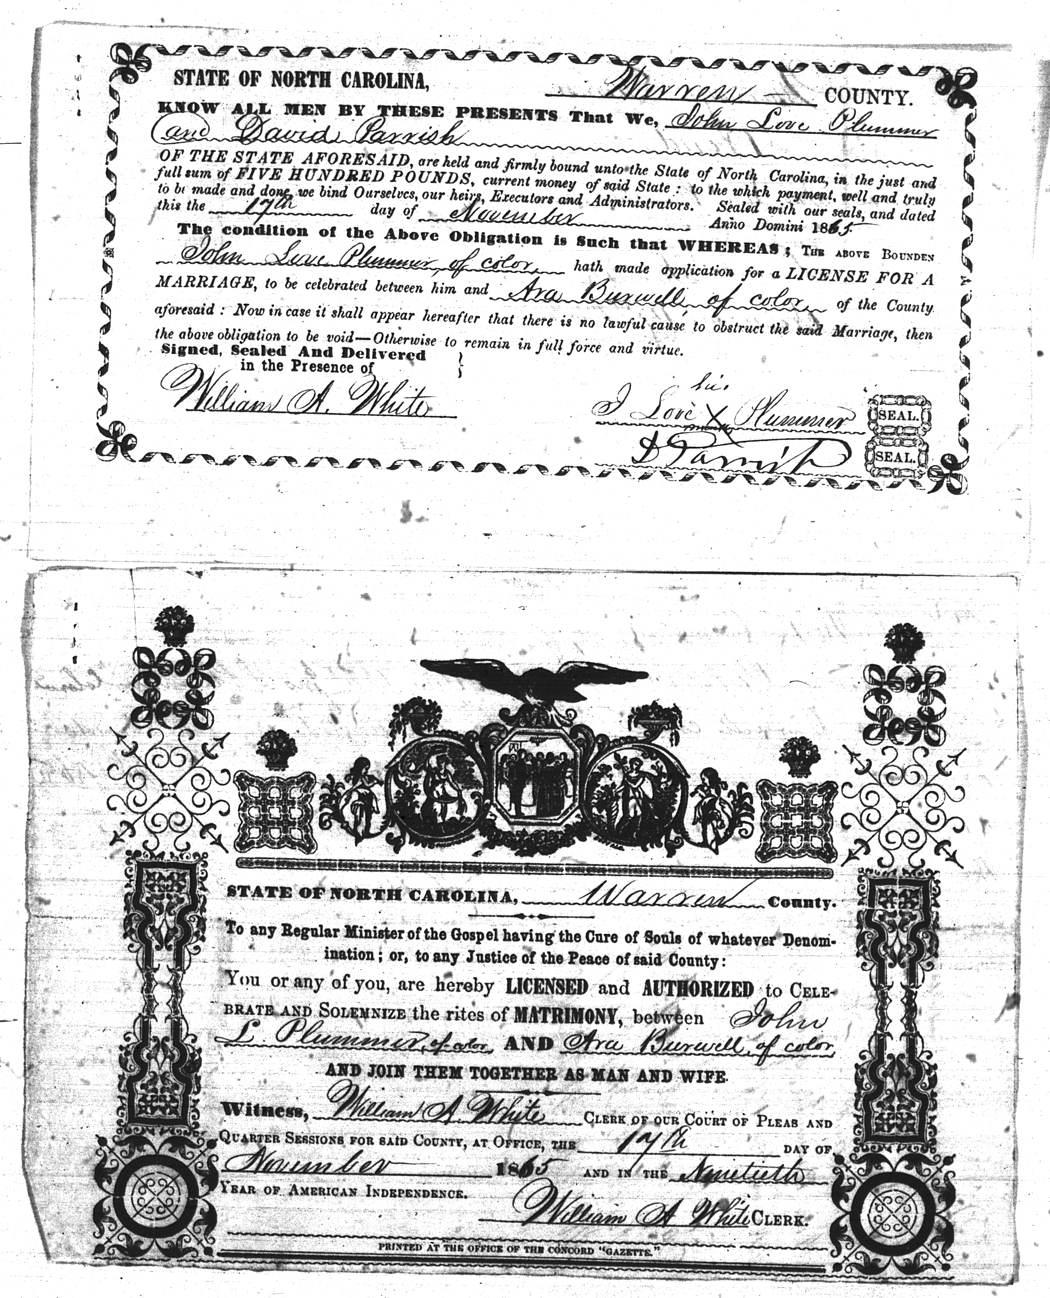 STATE OF NORTH CAROLINA, Warren COUNTY.
KNOW ALL MEN BY THESE PRESENTS That We, John Love Plummer
and David Parrish
OF THE STATE AFORESAID, are held and firmly bound unto the State of North Carolina, in the just and
full sum of FIVE HUNDRED POUNDS, current money of said State: to the which payment, well and truly
to be made and done, we bind Ourselves, our heirs, Executors and Administrators. Sealed with our seals, and dated
this the 17th day of November Anno Domini 1865
The condition of the Above Obligation is Such that WHEREAS; THE ABOVE BOUNDEN
John Love Plummer, of color, hath made application for a LICENSE FOR A
MARRIAGE, to be celebrated between him and Ara Burwell, of color, of the County
aforesaid: Now in case it shall appear hereafter that there is no lawful cause to obstruct the said Marriage, then
the above obligation to be void—Otherwise to remain in full force and virtue.
Signed, Sealed And Delivered
in the Presence of
William A. White
his
J Love X Plummer SEAL.
mark
D Parrish SEAL.
STATE OF NORTH CAROLINA, Warren County.
To any Regular Minister of the Gospel having the Cure of Souls of whatever Denom-
ination; or, to any Justice of the Peace of said County:
You or any of you, are hereby LICENSED and AUTHORIZED to CELE-
BRATE AND SOLEMNIZE the rites of MATRIMONY, between John
L. Plummer, of color, AND Ara Burwell, of color,
AND JOIN THEM TOGETHER AS MAN AND WIFE.
Witness, William A. White CLERK OF OUR COURT OF PLEAS AND
QUARTER SESSIONS FOR SAID COUNTY, AT OFFICE, THE 17th DAY OF
November 1865 AND IN THE Ninetieth
YEAR OF AMERICAN INDEPENDENCE.
William A White CLERK.
PRINTED AT THE OFFICE OF THE CONCORD "GAZETTE."